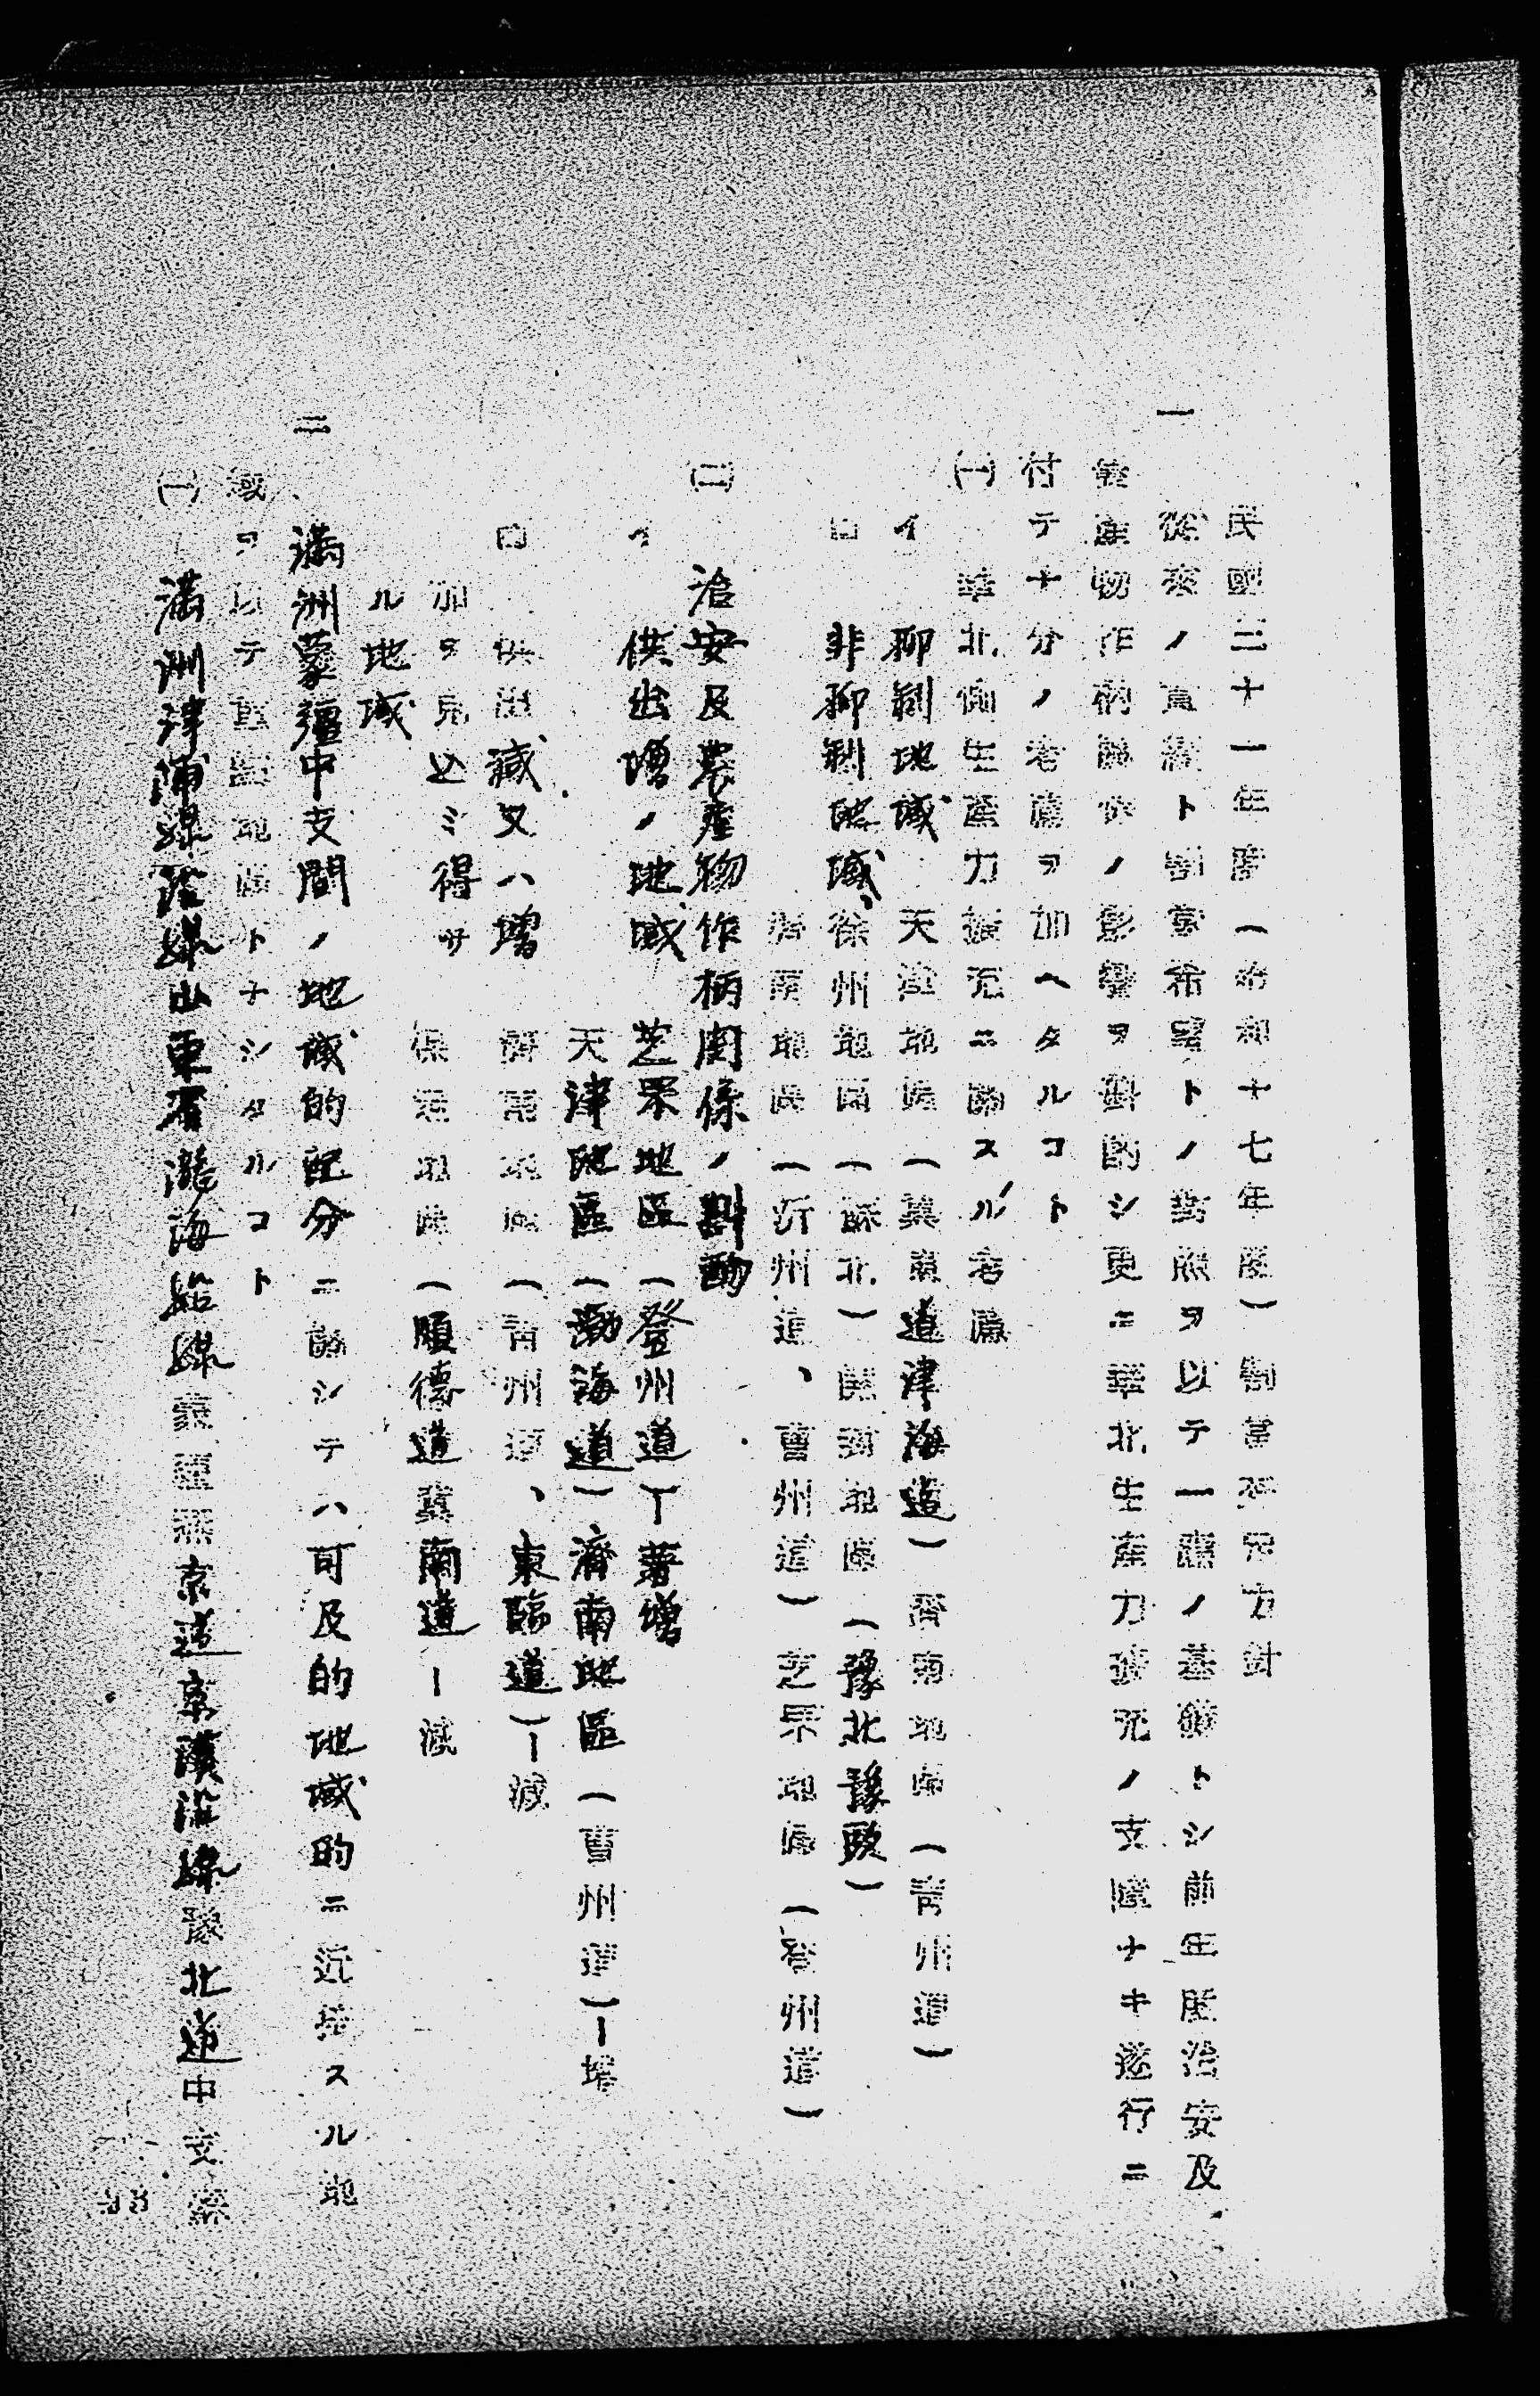 民國三十一年度（昭和十七年度）割當決定方針
一 從來ノ實績ト割當希望トノ對照ヲ以テ一應ノ基礎トシ前年度治安及
農産物作柄關係ノ影響ヲ斟酌シ更ニ華北生産力擴充ノ支障ナキ遂行ニ
付テ十分ノ考慮ヲ加ヘタルコト
㈠ 華北側生産力擴充ニ關スル考慮
イ 抑制地域 天津地區（冀東道津海道）濟南地區（靑州道）
ロ 非抑制地域 徐州地區（蘇北）開封地區（豫北豫政）
濟南地區（沂州道、曹州道）芝罘地區（登州道）
㈡ 治安及農産物作柄関係ノ斟酌
イ 供出増ノ地域 芝罘地区（登州道）ー著増
天津地區（渤海道）濟南地區（曹州道）ー増
ロ 供出減又ハ増 濟南地區（靑州道、東臨道）ー減
加ヲ見込ミ得サ 保定地區（順德道冀南道ー減
ル地域
二 満洲蒙疆中支間ノ地域的配分ニ關シテハ可及的地域的ニ近接スル地
域ヲ以テ重點地區トナシタルコト
㈠ 満洲津浦線沿線山東省瀧海沿線蒙疆燕京道京漢沿線豫北道中支蘇